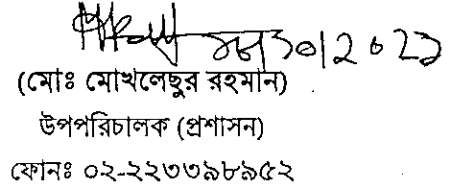 (মোঃ মোখলেছুর রহমান)
উপপরিচালক (প্রশাসন)
ফোনঃ ০২-২২৩৩৯৮৯৫২